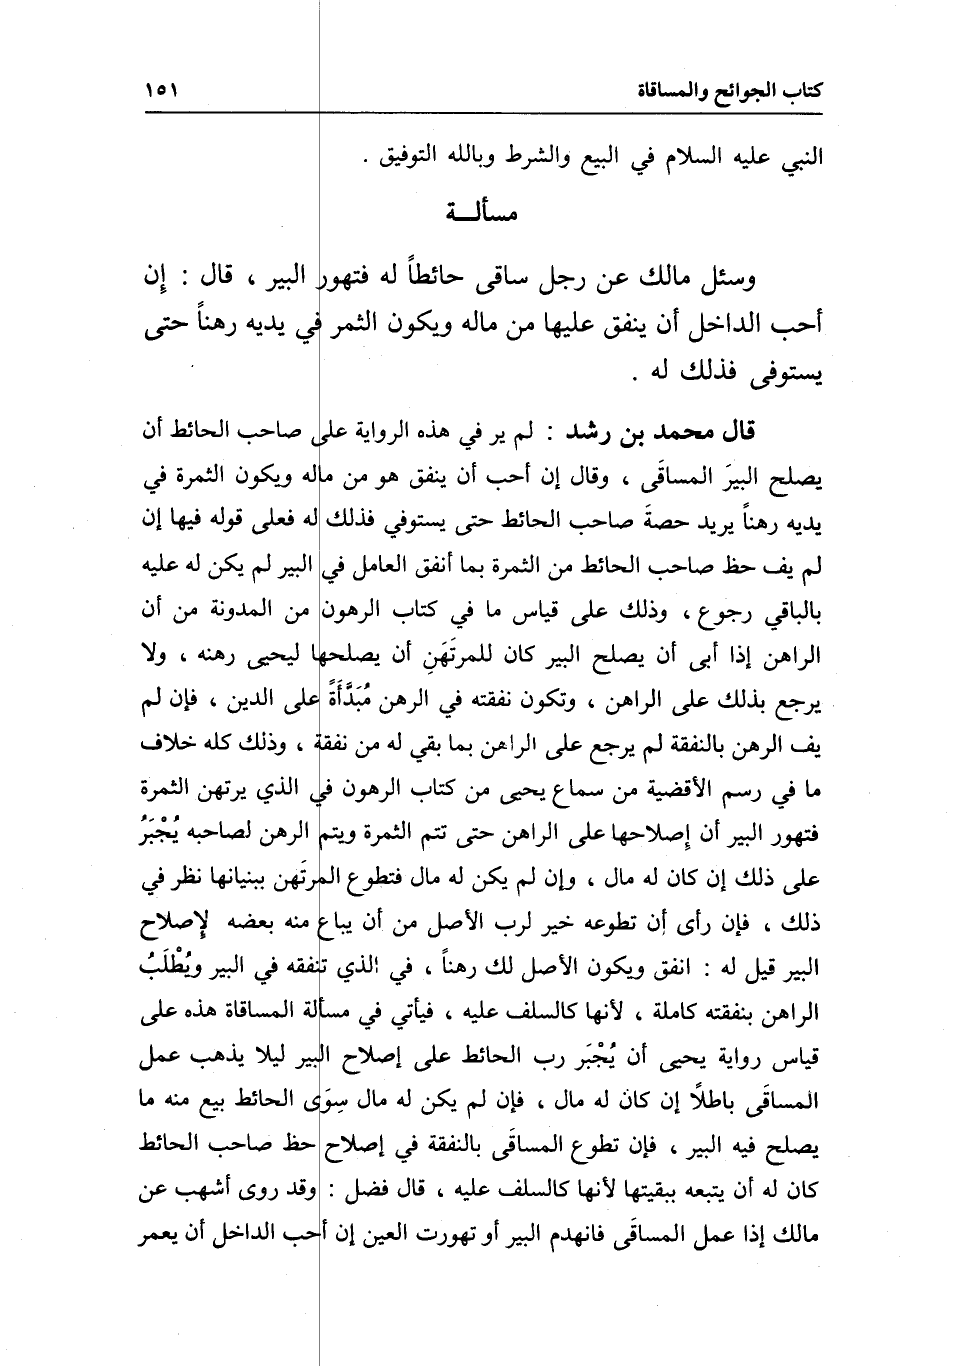 كتاب الجوائح والمساقاة ١٥١
النبي عليه السلام في البيع والشرط وبالله التوفيق .
مسألـــة
وسئل مالك عن رجل ساقى حائطاً له فتهور البير ، قال : إِن
أحب الداخل أن ينفق عليها من ماله ويكون الثمر في يديه رهناً حتى
يستوفى فذلك له .
قال محمد بن رشد : لم ير في هذه الرواية على صاحب الحائط أن
يصلح البيرَ المساقَى ، وقال إن أحب أن ينفق هو من ماله ويكون الثمرة في
يديه رهناً يريد حصةَ صاحب الحائط حتى يستوفي فذلك له فعلى قوله فيها إن
لم يف حظ صاحب الحائط من الثمرة بما أنفق العامل في البير لم يكن له عليه
بالباقي رجوع ، وذلك على قياس ما في كتاب الرهون من المدونة من أن
الراهن إذا أبى أن يصلح البير كان للمرتَهَنِ أن يصلحها ليحيى رهنه ، ولا
يرجع بذلك على الراهن ، وتكون نفقته في الرهن مُبَدَّأَةً على الدين ، فإن لم
يف الرهن بالنفقة لم يرجع على الراهن بما بقي له من نفقة ، وذلك كله خلاف
ما في رسم الأقضية من سماع يحيى من كتاب الرهون في الذي يرتهن الثمرة
فتهور البير أن إصلاحها على الراهن حتى تتم الثمرة ويتم الرهن لصاحبه يُجْبَرُ
على ذلك إن كان له مال ، وإن لم يكن له مال فتطوع المرتَهن ببنيانها نظر في
ذلك ، فإن رأى أن تطوعه خير لرب الأصل من أن يباع منه بعضه لإصلاح
البير قيل له : انفق ويكون الأصل لك رهناً ، في الذي تنفقه في البير ويُطْلَبُ
الراهن بنفقته كاملة ، لأنها كالسلف عليه ، فيأتي في مسألة المساقاة هذه على
قياس رواية يحيى أن يُجْبَر رب الحائط على إصلاح البير ليلا يذهب عمل
المساقَى باطلاً إن كان له مال ، فإن لم يكن له مال سِوَى الحائط بيع منه ما
يصلح فيه البير ، فإن تطوع المساقَى بالنفقة في إصلاح حظ صاحب الحائط
كان له أن يتبعه ببقيتها لأنها كالسلف عليه ، قال فضل : وقد روى أشهب عن
مالك إذا عمل المساقَى فانهدم البير أو تهورت العين إن أحب الداخل أن يعمر